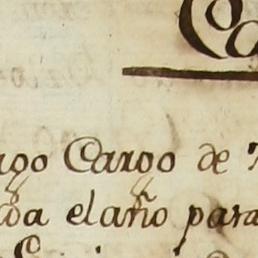 Co
ago Cargo de
ada el año para